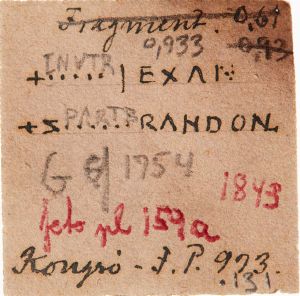 Fragment. 0,61
0,933 0,93
INVTR
+.....|EXAN
PARTB
+S.....RANDON
G 1754
1843
foto pl 159a
Kongsö - F.P. 923.
.131